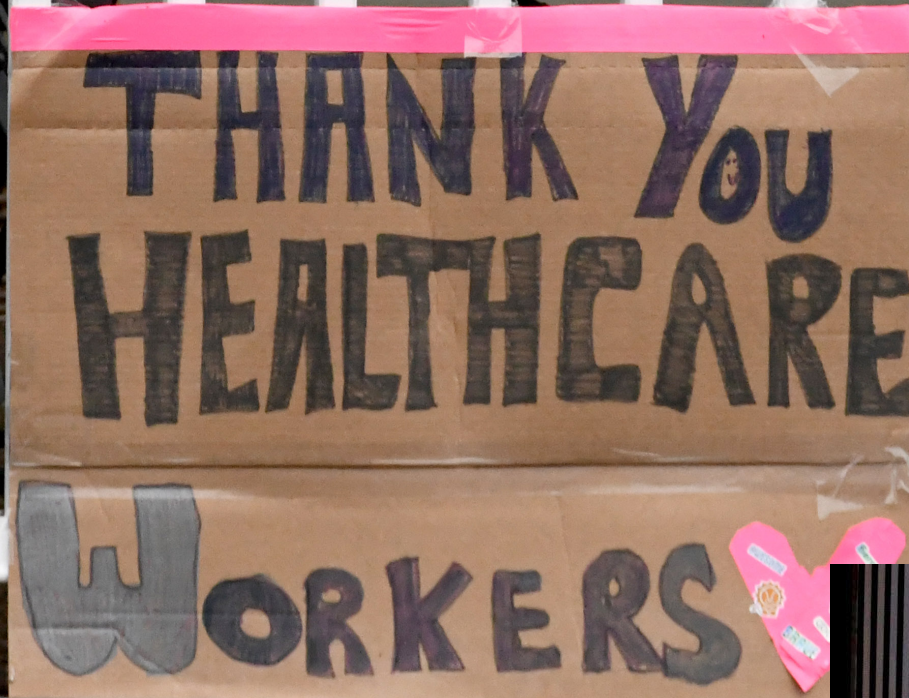 THANK YOU
HEALTHCARE
WORKERS